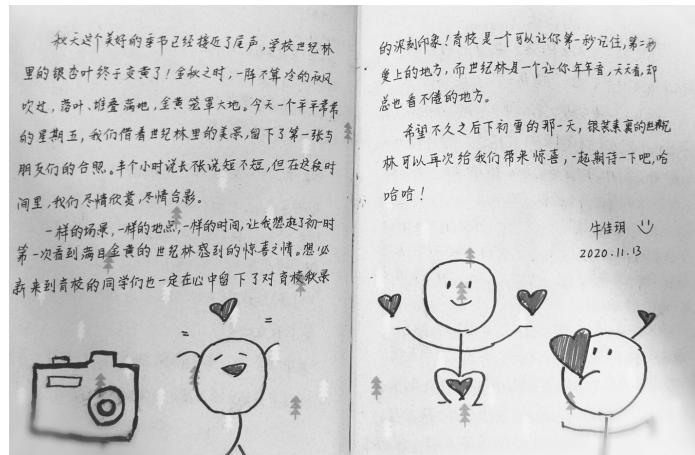 秋天这个美好的季节已经接近了尾声,学校世纪林
里的银杏叶终于变黄了!金秋之时,一阵不算冷的秋风
吹过,落叶堆叠满地,金黄笼罩大地。今天一个平平常常
的星期五,我们借着世纪林里的美景,留下了第一张与
朋友们的合照。半个小时说长不长说短不短,但在这段时
间里,我们尽情欣赏,尽情合影。
一样的场景,一样的地点,一样的时间,让我想起了初一时
第一次看到满目金黄的世纪林感到的惊喜之情。想必
新来到育校的同学们也一定在心中留下了对育校秋景
的深刻印象!育校是一个可以让你第一秒记住,第二秒
爱上的地方,而世纪林是一个让你年年看,天天看,却
总也看不倦的地方。
希望不久之后下初雪的那一天,银装素裹的世纪
林可以再次给我们带来惊喜,一起期待一下吧,哈
哈哈!
牛佳玥
2020.11.13